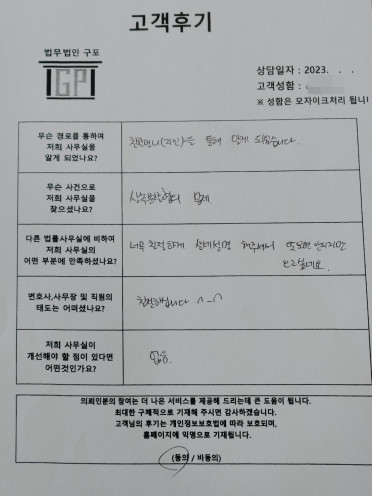 고객후기
법무법인 구포
GP
상담일자 : 2023. . .
고객성함 :
※ 성함은 모자이크처리 됩니
무슨 경로를 통하여
저희 사무실을
알게 되었나요?
친한언니(지인)를 통해 알게 되었습니다.
무슨 사건으로
저희 사무실을
찾으셨나요?
상속문제
다른 법률사무실에 비하여
저희 사무실의
어떤 부분에 만족하셨나요?
너무 친절하게 상세설명 해주셔서
변호사,사무장 및 직원의
태도는 어떠셨나요?
친절하십니다 ^-^
저희 사무실이
개선해야 할 점이 있다면
어떤것인가요?
없음.
의뢰인분의 참여는 더 나은 서비스를 제공해 드리는데 큰 도움이 됩니다.
최대한 구체적으로 기재해 주시면 감사하겠습니다.
고객님의 후기는 개인정보보호법에 따라 보호되며,
홈페이지에 익명으로 기재됩니다.
(동의 / 비동의)